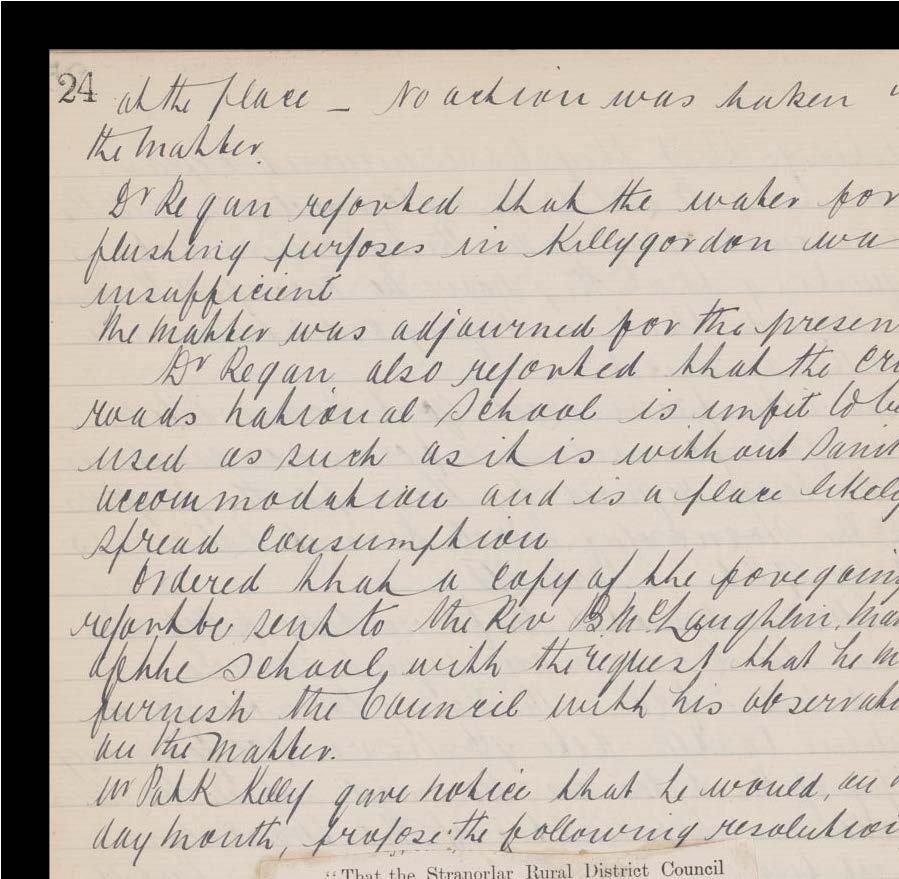 24 at the place – No action was taken
the matter.
Dr Regan reported that the water for
flushing purposes in Killygordon wa
insufficient
The matter was adjourned for the presen
Dr Regan also reported that the Cr
roads national School is unfit to be
used as such as it is without Sani
accommodation and is a place likely
spread consumption
Ordered that a copy of the foregoing
report be sent to the Rev B. McLaughlin, Man
of the School, with the request that he m
furnish the Council with his observati
on the matter.
Mr Patk Kelly gave notice that he would, on
day month, propose the following resolution
“That the Stranorlar Rural District Council